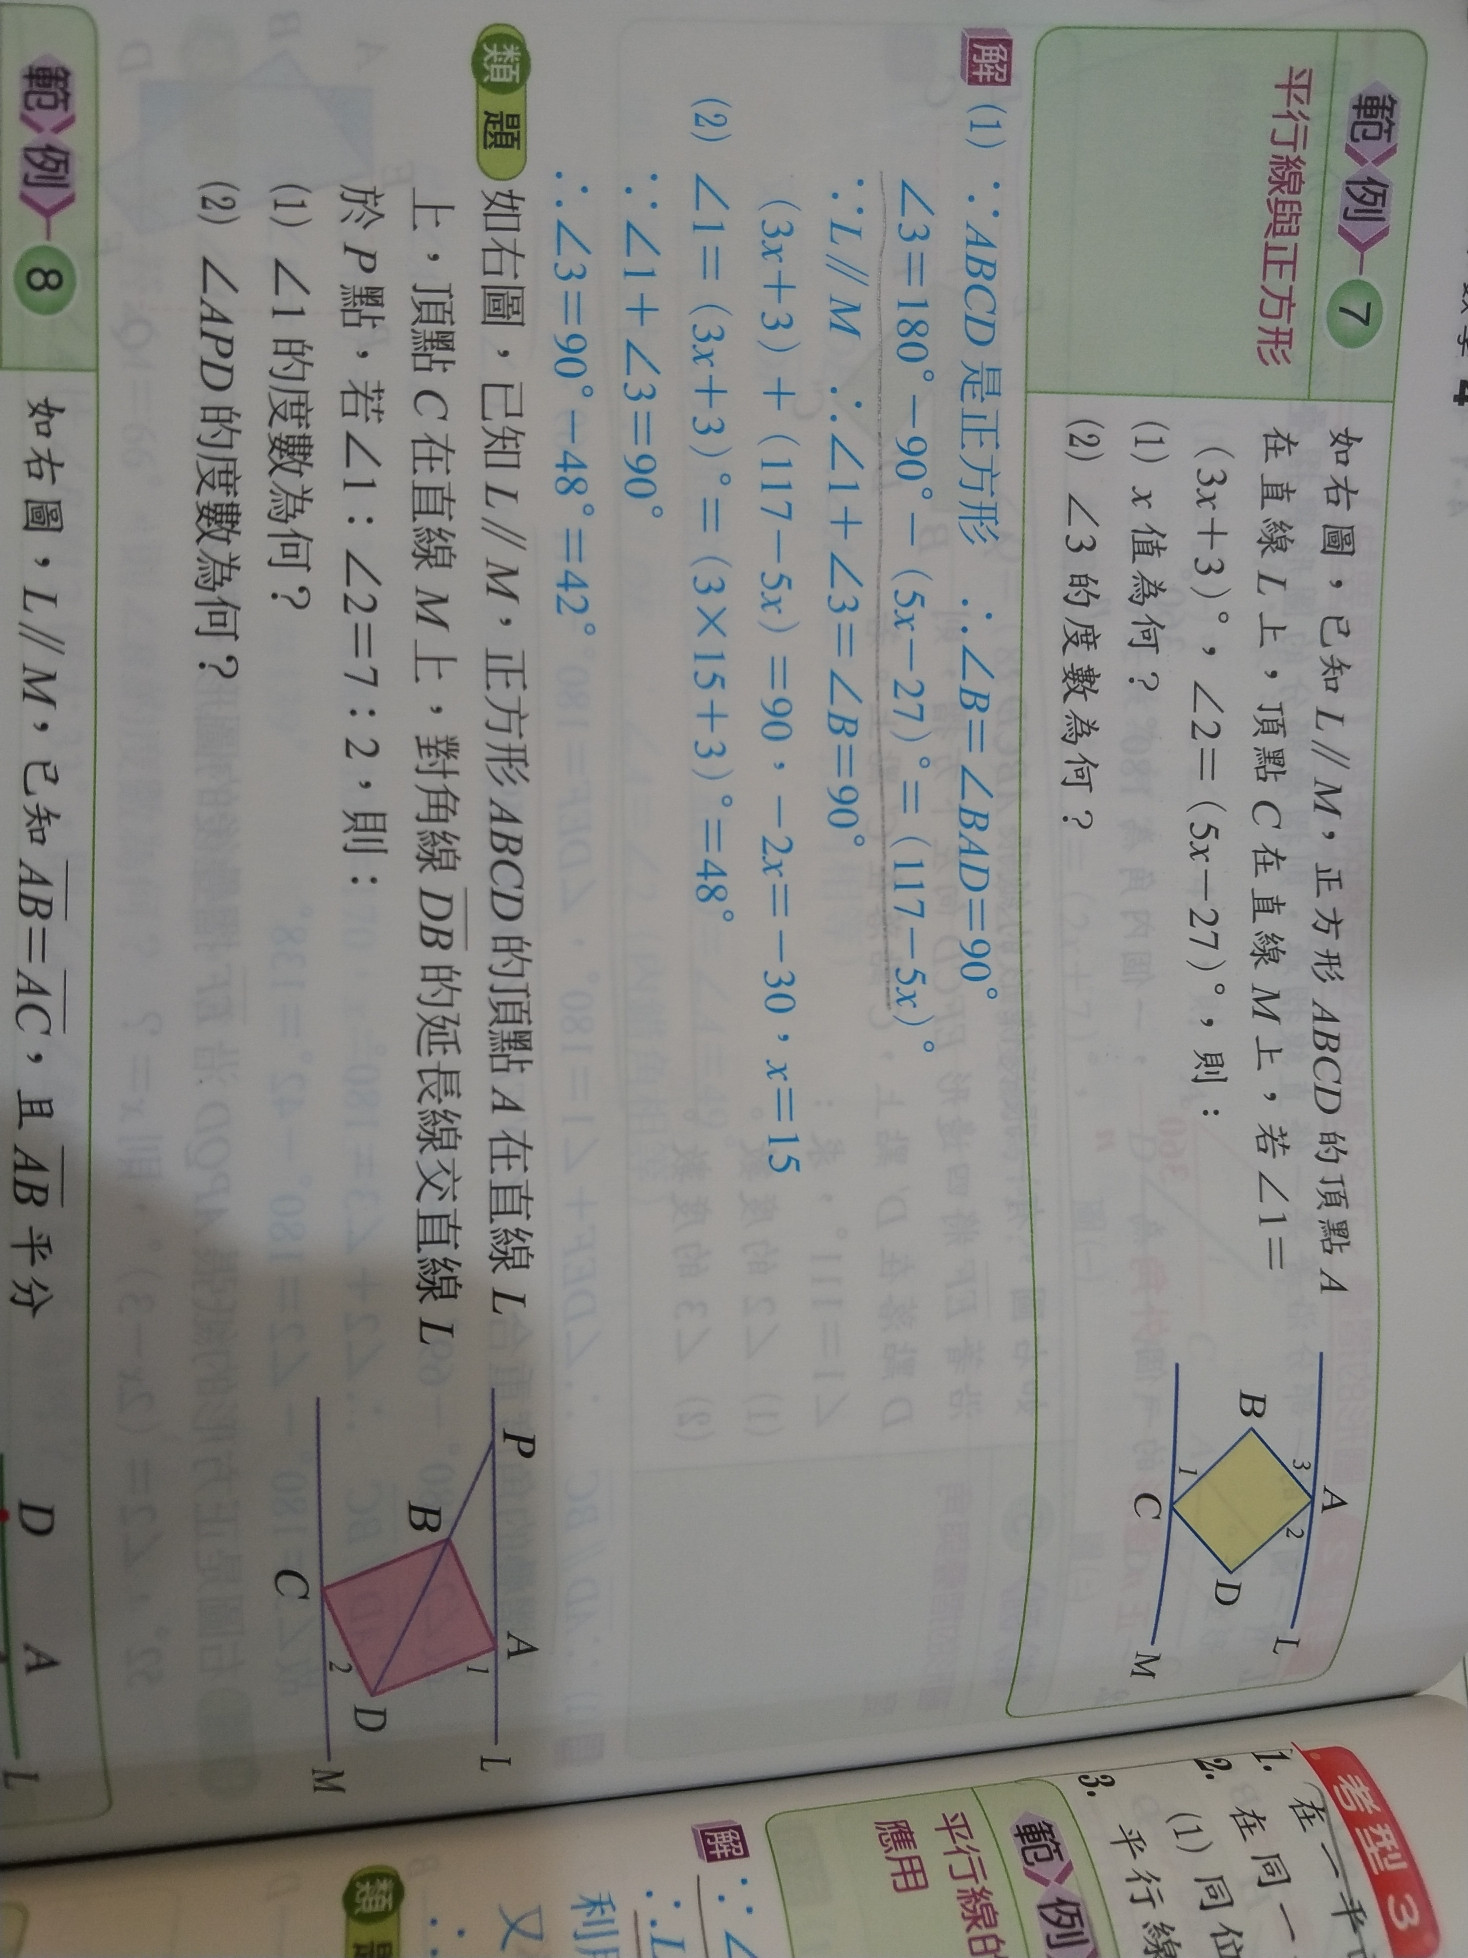 數學 4
範例 7
平行線與正方形
如右圖，已知 L∥M，正方形 ABCD 的頂點 A
在直線 L 上，頂點 C 在直線 M 上，若∠1＝
(3x＋3)°，∠2＝(5x－27)°，則：
(1) x 值為何？
(2) ∠3 的度數為何？
A
B
3
2
1
C
D
L
M
解 (1) ∵ABCD 是正方形 ∴∠B＝∠BAD＝90°
∠3＝180°－90°－(5x－27)°＝(117－5x)°
∵L∥M ∴∠1＋∠3＝∠B＝90°
(3x＋3)＋(117－5x)＝90，－2x＝－30，x＝15
(2) ∠1＝(3x＋3)°＝(3×15＋3)°＝48°
∵∠1＋∠3＝90°
∴∠3＝90°－48°＝42°
類題 如右圖，已知 L∥M，正方形 ABCD 的頂點 A 在直線 L
上，頂點 C 在直線 M 上，對角線 DB 的延長線交直線 L
於 P 點，若∠1：∠2＝7：2，則：
(1) ∠1 的度數為何？
(2) ∠APD 的度數為何？
P
A
L
1
B
D
2
C
M
範例 8
如右圖，L∥M，已知 AB＝AC，且 AB 平分
D
A
L
考型 3
1. 在一平
2. 在同一
(1) 同位
3. 平行線
範例
平行線的
應用
解 ∵∠
∴L
利用
又
∴
類題